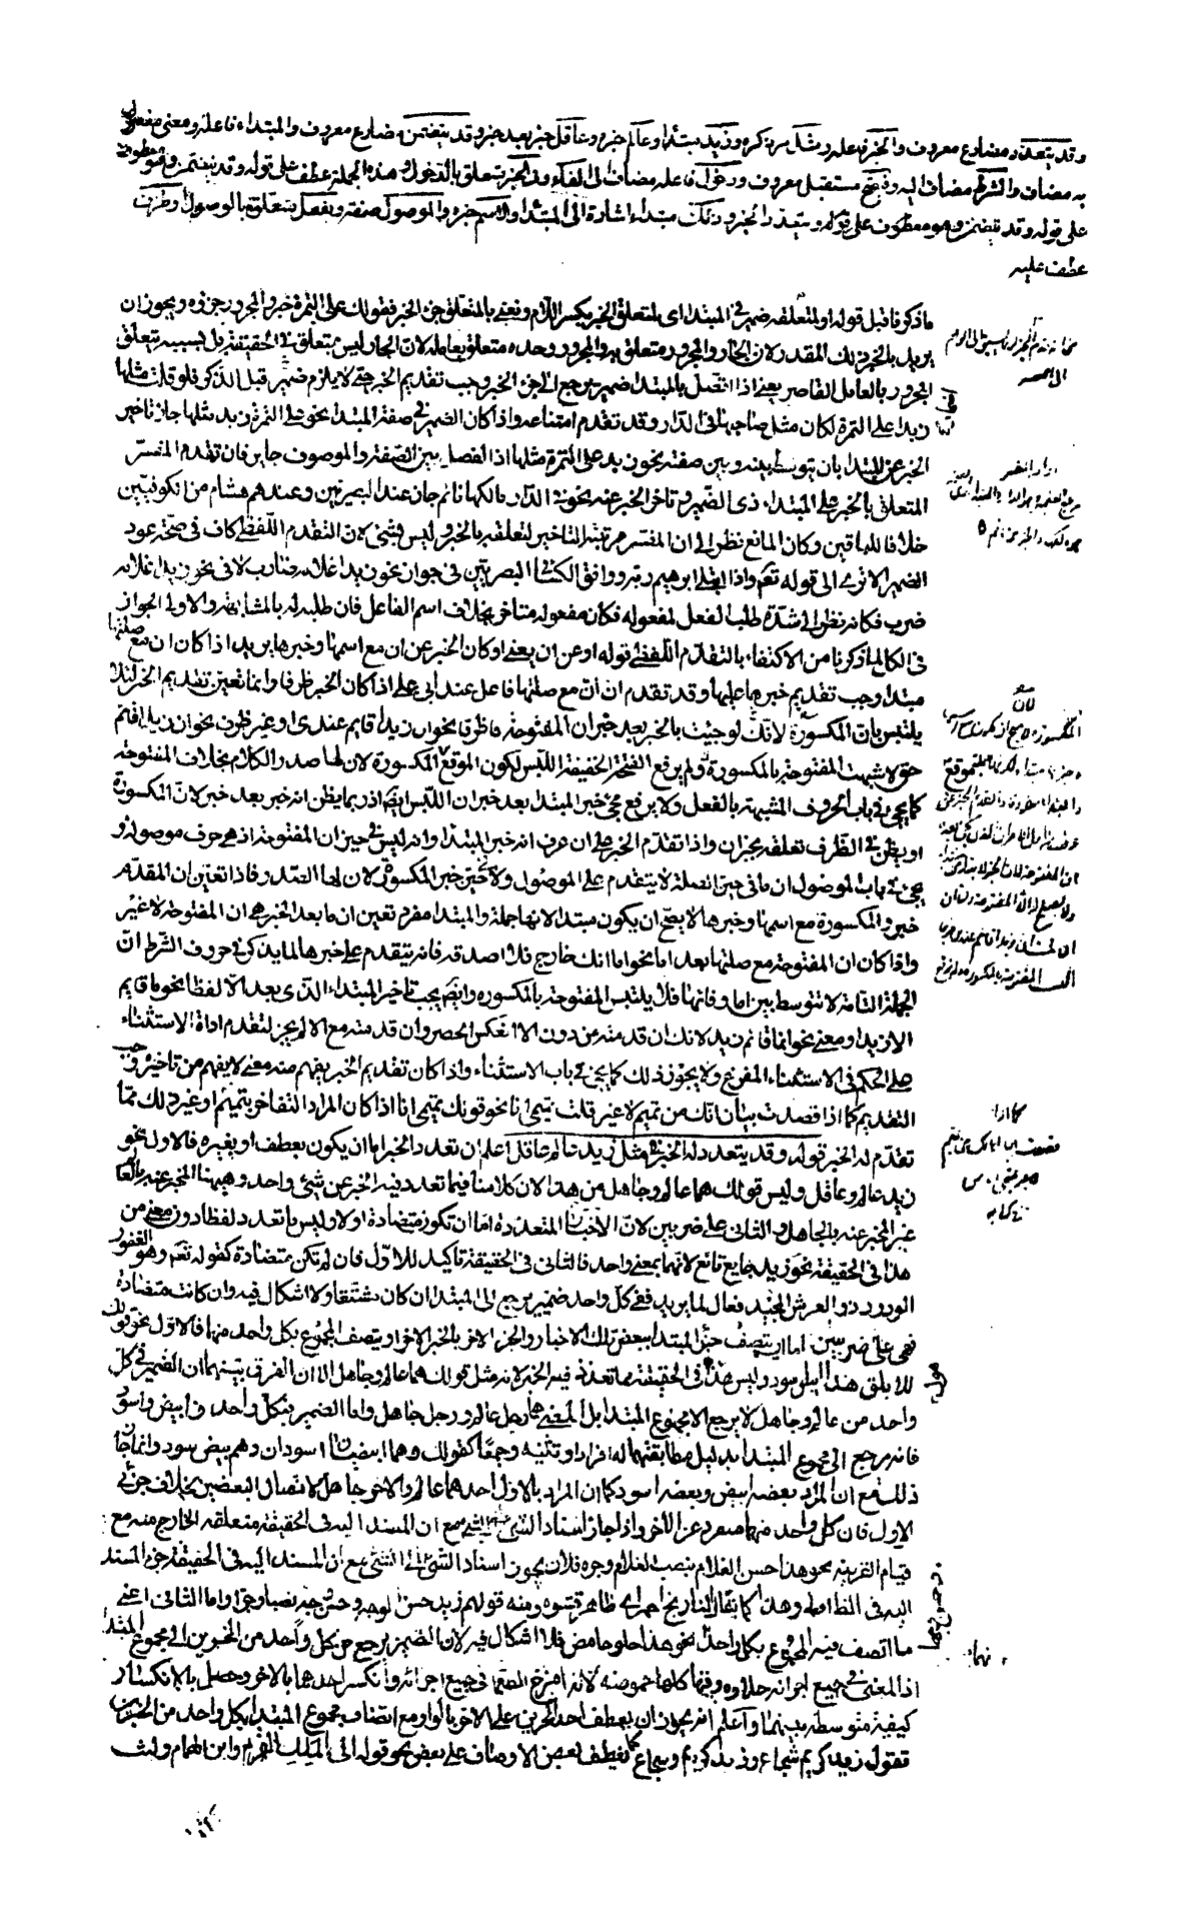 وقد يتعدد مضارع معروف والخبر فاعله ومثل مر ذكره وزيد مبتدا وعالم خبره وعاقل خبر بعد خبر وقد يتضمن مضارع معروف والمبتداء فاعله ومعنى مفعول
به مضاف والشرط مضاف اليه وفيصح مستقبل معروف ودخول فاعله مضاف الى الفاء وفى الخبر يتعلق بالدخول وهذه الجملة عطف على قوله وقد يتضمن وهو معطوف
على قوله وقد يتضمن وهو معطوف على قوله ويتعدد الخبر وذلك مبتداء اشارة الى المبتداء والاسم خبره والموصول صفته وبفعل يتعلق بالوصول وظرف
عطف عليه
ما ذكرنا قبل قوله او لمتعلقه ضمير فى المبتدا اى لمتعلق الخبر بكسر اللام ونعنى بالمتعلق جزء الخبر فقولك على التمرة خبر والمجرور جزؤه ويجوز ان
يريد بالخبر ذلك المقدر لان الجار والمجرور متعلق به والمجرور وحده متعلق بعامله لان الجار ليس متعلق فى الحقيقة بل بسببه يتعلق
المجرور بالعامل القاصر يعنى اذا اتصل بالمبتدا ضمير يرجع الى جزء الخبر وجب تقديم الخبر حتى لا يلزم ضمير قبل الذكر فلو قلت مثلها
زيدا على التمرة لكان مثل صاحبها فى الدار وقد تقدم امتناعه واذا كان الضمير فى صفة المبتدا نحو على التمرة زبد مثلها جاز تاخير
الخبر عن المبتدا بان يتوسط بينه وبين صفته نحو زبد على التمرة مثلها اذ الفصل بين الصفة والموصوف جايز فان تقدم المفسر
المتعلق بالخبر على المبتداء ذى الضمير وتاخر الخبر عنه نحو فى الدار مالكها نائم جاز عند البصريين وعند هشام من الكوفيين
خلافا للباقين وكان المانع نظر الى ان المفسر مرتبته التاخير لتعلقه بالخبر وليس بشئ لان التقدم اللفظى كاف فى صحة عود
الضمير الا ترى الى قوله تعم واذ ابتلى ابرهيم ربه ووافق الكسائى البصريين فى جواز نحو زيدا غلامه ضارب لا فى نحو زيدا غلامه
ضرب فكانه نظر الى شدة طلب الفعل لمفعوله فكان مفعوله متاخر بخلاف اسم الفاعل فان طلبه له بالمشابهة والاولى الجواز
فى الكل لما ذكرنا من الاكتفاء بالتقدم اللفظى قوله او عن ان يعنى او كان الخبر عن ان مع اسمها وخبرها يريد اذا كان ان مع صلتها
مبتدا وجب تقديم خبرها عليها وقد تقدم ان ان مع صلتها فاعل عند ابى على اذا كان الخبر ظرفا وانما تعين تقديم الخبر لئلا
يلتبس بان المكسورة لانك لو جئت بالخبر بعد خبر ان المفتوحة فاظرفا نحو ان زيدا قايم عندى او غير ظرف نحو ان زيدا قائم
حق لاشبهت المفتوحة بالمكسورة ولم يرفع الفتح الخفية اللبس لكون الموقع المكسورة لان لها صدر الكلام بخلاف المفتوحة
كما يجئ فى باب الحروف المشبهة بالفعل ولا يرفع مجئ خبر المبتدا بعد خبر ان اللبس ايض اذ ربما يظن انه خبر بعد خبر لان المكسورة
او يظن فى الظرف تعلقه بخبر ان واذا تقدم الخبر على ان عرف انه خبر المبتدا وانه ليس فى حيز ان المفتوحة اذ هى حرف موصولة و
يجئ فى باب الموصول ان ما فى حيز الصلة لا يتقدم على الموصول ولا فى حيز خبر المكسورة لان لها الصدر فاذا تعين ان المقدم
خبر والمكسورة مع اسمها وخبرها لا يصح ان يكون مبتدا لانها جملة والمبتدا مفرد تعين ان ما بعد الخبر هى ان المفتوحة لا غير
واذا كان ان المفتوحة مع صلتها بعد اما نحو اما انك خارج فلا اصدقه فانه يتقدم على خبرها لما يذكر فى حروف الشرط ان
الجملة التامة لا تتوسط بين اما وفائها فلا يلتبس المفتوحة بالمكسورة وايضا يجب تاخير المبتداء الذى بعد الا لفظا نحو ما قايم
الا زيد او معنى نحو انما قائم زيد لانك ان قدمته من دون الا انعكس الحصر وان قدمته مع الا لم يجز لتقدم اداة الاستثناء
على الحكم فى الاستثناء المفرغ ولا يجوز ذلك كما يجئ فى باب الاستثناء واذا كان تقديم الخبر يفهم منه معنى لا يفهم من تاخيره وجب
التقديم كما اذا قصدت بيان انك من تميم لا غير قلت تميمى انا نحو قولك تميمى انا اذا كان المراد التفاخر بتميم او غير ذلك مما
تقدم له الخبر قوله وقد يتعدد له الخبر مثل زيد عالم عاقل اعلم ان تعدد الخبر اما ان يكون بعطف او بغيره فالاول نحو
زيد عالم وعاقل وليس قولك هما عالم وجاهل من هذا لان كلامنا فيما تعدد فيه الخبر عن شئ واحد وهيهنا المخبر عنه بالعالم
غير المخبر عنه بالجاهل والثانى على ضربين لان الاخبار المتعددة اما ان تكون متضادة او لا وليس ما تعدد لفظا دون معنى من
هذا فى الحقيقة نحو زيد جايع نائع لانهما بمعنى واحد فالثانى فى الحقيقة تاكيد للاول فان لم تكن متضادة كقوله تعم وهو الغفور
الودود ذو العرش المجيد فعال لما يريد ففى كل واحد ضمير يرجع الى المبتدا ان كان مشتقا ولا اشكال فيه وان كانت متضادة
فهى على ضربين اما ان يتصف جزء المبتدا ببعض تلك الاخبار والجزء الاخر بالخبر الاخر او يتصف المجموع بكل واحد منها فالاول نحو قولك
للابلق هذا ابيض اسود وليس هذا فى الحقيقة مما تعدد فيه الخبر لانه مثل قولك هما عالم وجاهل الا ان الفرق بينهما ان الضمير فى كل
واحد من عالم وجاهل لا يرجع الا مجموع المبتدا بل المعنى هما رجل عالم ورجل جاهل واما الضمير فى كل واحد من ابيض واسود
فانه يرجع الى مجموع المبتدا بدليل مطابقتهما له افرادا وتثنية وجمعا كقولك وهما ابيضان اسودان وهم بيض سود وانما جاز
ذلك مع ان المراد بعضه ابيض وبعضه اسود كما ان المراد بالاول احدهما عالم والاخر جاهل لاتصال البعضين بخلاف جزئى
الاول فان كل واحد منهما منفرد عن الاخر واذا جاز اسناد الشئ الى الشئ مع ان المسند اليه فى الحقيقة متعلقه الخارج منه مع
قيام القرينة نحو هذا حسن الغلام بنصب الغلام وجره فلان يجوز اسناد الشئ الى الشئ مع ان المسند اليه فى الحقيقة جزء المسند
اليه فى الظاهر وهذا كما يقال للنارنج احمر اى ظاهر قشوره ومنه قولهم زيد حسن الوجه وحسن وجه نصبا وجرا واما الثانى اعنى
ما اتصف فيه المجموع بكل واحد نحو هذا حلو حامض فلا اشكال فيه لان الضمير يرجع من كل واحد من الخبرين الى مجموع المبتدا
اذ المعنى فى جميع اجزائه حلاوة وفيها كلها حموضة لانه امتزج الطعمان فى جميع اجزائه وانكسر احدهما بالاخر وحصل بالانكسار
كيفية متوسطة بينهما واعلم انه يجوز ان يعطف احد الخبرين على الاخر بالواو مع اتصاف مجموع المبتدا بكل واحد من الخبرين
فتقول زيد كريم شجاع وزيد كريم وشجاع كما يعطف بعض الاوصاف على بعض نحو قوله الى الملك القرم وابن الهمام وليث